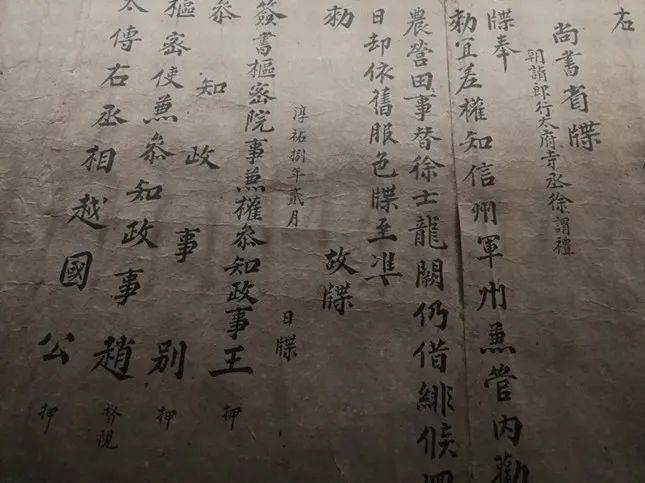 右
尚書省牒
朝請郎行太府寺丞徐謂禮
牒奉
勅宜差權知信州軍州兼管內勸
農營田事替徐士龍闕仍借緋候
日却依舊服色牒至準
勅 故牒
淳祐捌年貳月 日牒
簽書樞密院事兼權參知政事王 押
參知政事別 押
樞密使兼參知政事趙 督視
太傅右丞相越國公 押